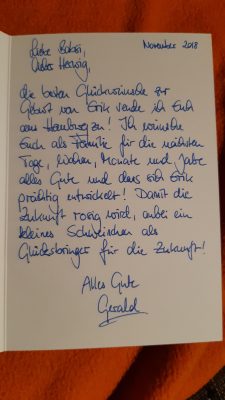 November 2018
Liebe
Lieber Hedwig,
die besten Glückwünsche zur
Geburt von Erik sende ich Euch
aus Hamburg zu! Ich wünsche
Euch als Familie für die nächsten
Tage, Wochen, Monate und Jahre
alles Gute und dass sich Erik
prächtig entwickelt! Damit die
Zukunft rosig wird, anbei ein
kleines Schweinchen als
Glücksbringer für die Zukunft!
Alles Gute
Gerald